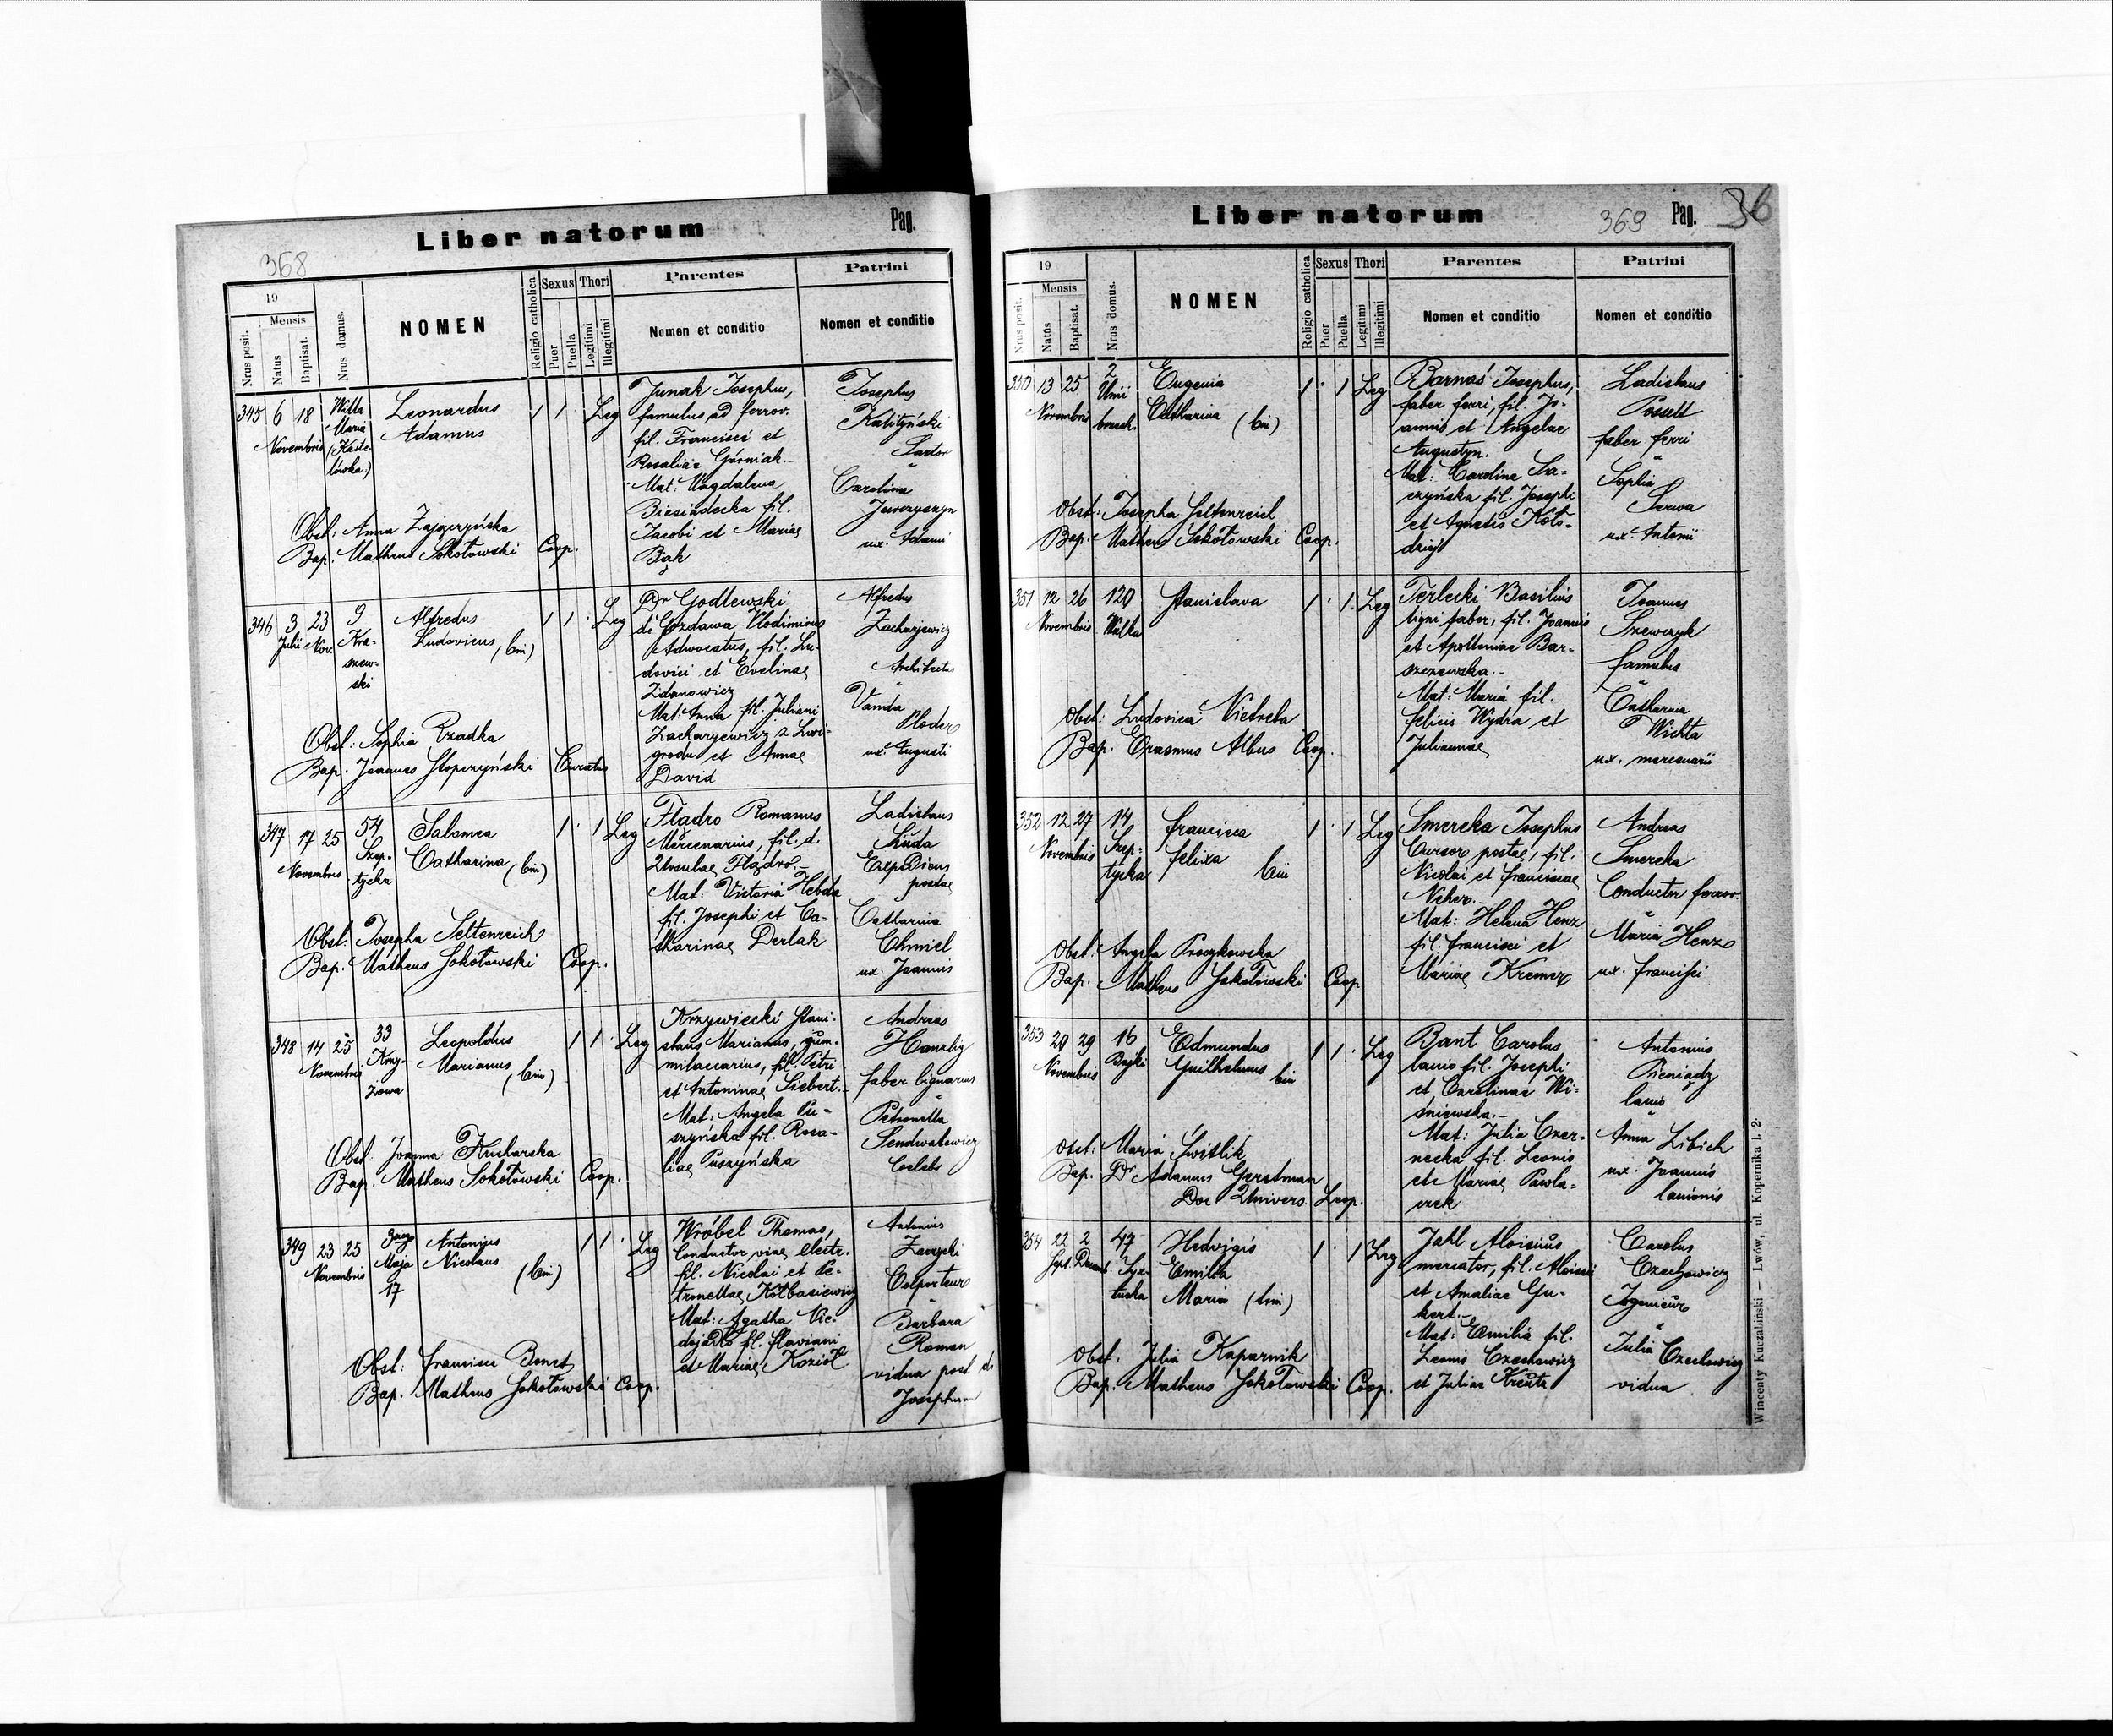 Liber natorum
Pag.
368
19
Mensis
Nrus posit.
Natus
Baptisat.
Nrus domus.
NOMEN
Religio catholica
Sexus
Puer
Puella
Thori
Legitimi
Illegitimi
Parentes
Nomen et conditio
Patrini
Nomen et conditio
345 6 18 Willa Maria (Kaste-lówka)
Novembris
Leonardus
Adamus
1 1 Leg
Junak Josephus,
famulus ad ferrov.
fil. Francisci et
Rosaliae Górniak.
Mat: Magdalena
Biesiadecka fil.
Jacobi et Mariae
Bąk
Josephus
Sartor
Carolina
Jaworyszyn
ux. Adami
Obst: Anna Zajączyńska
Bap. Matheus Sokołowski Coop.
346 3 23 9
Julii Nov. Kra-
szew-
ski
Alfredus
Ludovicus, (bin)
1 1 Leg
Dr Godlewski
de Gozdawa Vlodimirus
Advocatus, fil. Lu-
dovici et Evelinae
Zdanowicz
Mat: Anna fil. Juliani
Zacharyewicz z Lwi-
grodu et Annae
David
Alfredus
Zacharjewicz
Architectus
Vanda
Ploder
ux. Augusti
Obst: Sophia Rzadka
Bap. Joannes Słopczyński Curatus
347 17 25 54
Novembris Szep-
tycka
Salomea
Catharina, (bin)
1 1 Leg
Fladro Romanus
Mercenarius, fil. d.
Ursulae Fladro.
Mat: Victoria Hebda
fil. Josephi et Ca-
tharinae Derlak
Ladislaus
Duda
Expediens
postae
Catharina
Chmiel
ux. Joannis
Obst: Josepha Seltenreich
Bap. Matheus Sokołowski Coop.
348 14 25 33
Novembris Krzy-
żowa
Leopoldus
Marianus, (bin)
1 1 Leg
Krzywiecki Stani-
slaus Marianus, gum-
milaccarius, fil. Petri
et Antoninae Siebert.
Mat: Angela Pu-
szyńska fil. Rosa-
liae Puszyńska
Andreas
Hanzlig
faber lignarius
Petronella
Sendwalewicz
Coelebs
Obst: Joanna Kucharska
Bap. Matheus Sokołowski Coop.
349 23 25 3go
Novembris Maja
17
Antonius
Nicolaus (bin)
1 1 Leg
Wróbel Thomas,
Conductor viae electr.
fil. Nicolai et Pe-
tronellae Kołbasiewicz
Mat: Agatha Nie-
dojadło fil. Flaviani
et Mariae Kozioł
Antonius
Zarycki
Colporteur
Barbara
Roman
vidua post d.
Josephum
Obst: Francisca Benet
Bap. Matheus Sokołowski Coop.
Liber natorum
369
Pag. 36
19
Mensis
Nrus posit.
Natus
Baptisat.
Nrus domus.
NOMEN
Religio catholica
Sexus
Puer
Puella
Thori
Legitimi
Illegitimi
Parentes
Nomen et conditio
Patrini
Nomen et conditio
350 13 25 2
Novembris Unii
brzesk.
Eugenia
Catharina (bin)
1 1 Leg
Barnaś Josephus,
faber ferri, fil. Jo-
annis et Angelae
Augustyn.
Mat: Carolina Sa-
czyńska fil. Josephi
et Agnetis Koło-
dziej
Ladislaus
Posselt
faber ferri
Sophia
Serwa
ux. Antonii
Obst: Josepha Seltenreich
Bap. Matheus Sokołowski Coop.
351 12 26 120
Novembris Wulka
Stanislava
1 1 Leg
Terlecki Basilius
ligni faber, fil. Joannis
et Apolloniae Bar-
szczewska.
Mat: Maria fil.
Felicis Wydra et
Juliannae
Joannes
Szewczyk
famulus
Catharina
Wichta
ux. mercenarii
Obst: Ludovica Vietreba
Bap. Erasmus Albus Coop.
352 12 27 14
Novembris Szep-
tycka
Francisca
Felixa bin
1 1 Leg
Smereka Josephus
Cursor postae, fil.
Nicolai et Franciscae
Neher.
Mat: Helena Henz
fil. Francisci et
Mariae Kremer
Andreas
Smereka
Conductor ferrov.
Maria Henz
ux. Francisci
Obst: Angela Proczkowska
Bap. Matheus Sokołowski Coop.
353 20 29 16
Novembris Bajki
Edmundus
Guilhelmus bin
1 1 Leg
Bant Carolus
lanio fil. Josephi
et Carolinae Wi-
śniewska.
Mat: Julia Czer-
necka fil. Leonis
et Mariae Pawla-
czek
Antonius
Pieniądz
lanio
Anna Libich
ux. Joannis
lanionis
Obst: Maria Świtlik
Bap. Dr Adamus Gerstman
Doc Univers. Coop.
354 22 2 47
Sept. Decemb. Syx-
tuska
Hedvigis
Emilia
Maria (bin)
1 1 Leg
Jahl Aloisius
mercator, fil. Aloisii
et Amaliae Gu-
kert.
Mat: Emilia fil.
Leonis Czechowicz
et Juliae Kreutz
Carolus
Czechowicz
Ingenieur
Julia Czechowicz
vidua
Obst. Julia Kaparnik
Bap. Matheus Sokołowski Coop.
Wincenty Kuczabiński — Lwów, ul. Kopernika l. 2.